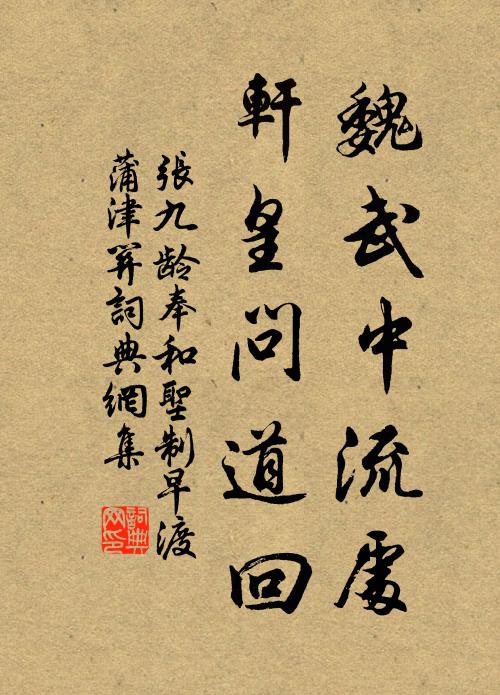 魏武中流處
軒皇問道回
張九龄奉和聖制早渡
蒲津関詞典網集
詞典网印